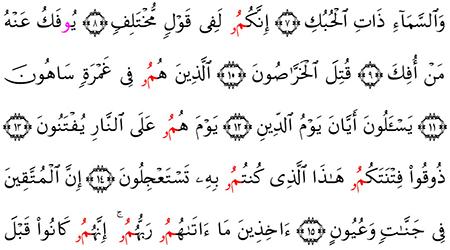 وَالسَّمَآءِ ذَاتِ الْحُبُكِ ۝٧ إِنَّكُمُۥ لَفِى قَوْلٍ مُّخْتَلِفٍ ۝٨ يُوفَكُ عَنْهُ
مَنْ أُفِكَ ۝٩ قُتِلَ الْخَرَّٰصُونَ ۝١٠ الَّذِينَ هُمُۥ فِى غَمْرَةٍ سَاهُونَ
۝١١ يَسْـَٔلُونَ أَيَّانَ يَوْمُ الدِّينِ ۝١٢ يَوْمَ هُمُۥ عَلَى النَّارِ يُفْتَنُونَ ۝١٣
ذُوقُوا۟ فِتْنَتَكُمُۥ هَٰذَا الَّذِى كُنتُمُۥ بِهِۦ تَسْتَعْجِلُونَ ۝١٤ إِنَّ الْمُتَّقِينَ
فِى جَنَّٰتٍ وَعُيُونٍ ۝١٥ ءَاخِذِينَ مَا ءَاتَىٰهُمُۥ رَبُّهُمُۥ ۚ إِنَّهُمُۥ كَانُوا۟ قَبْلَ